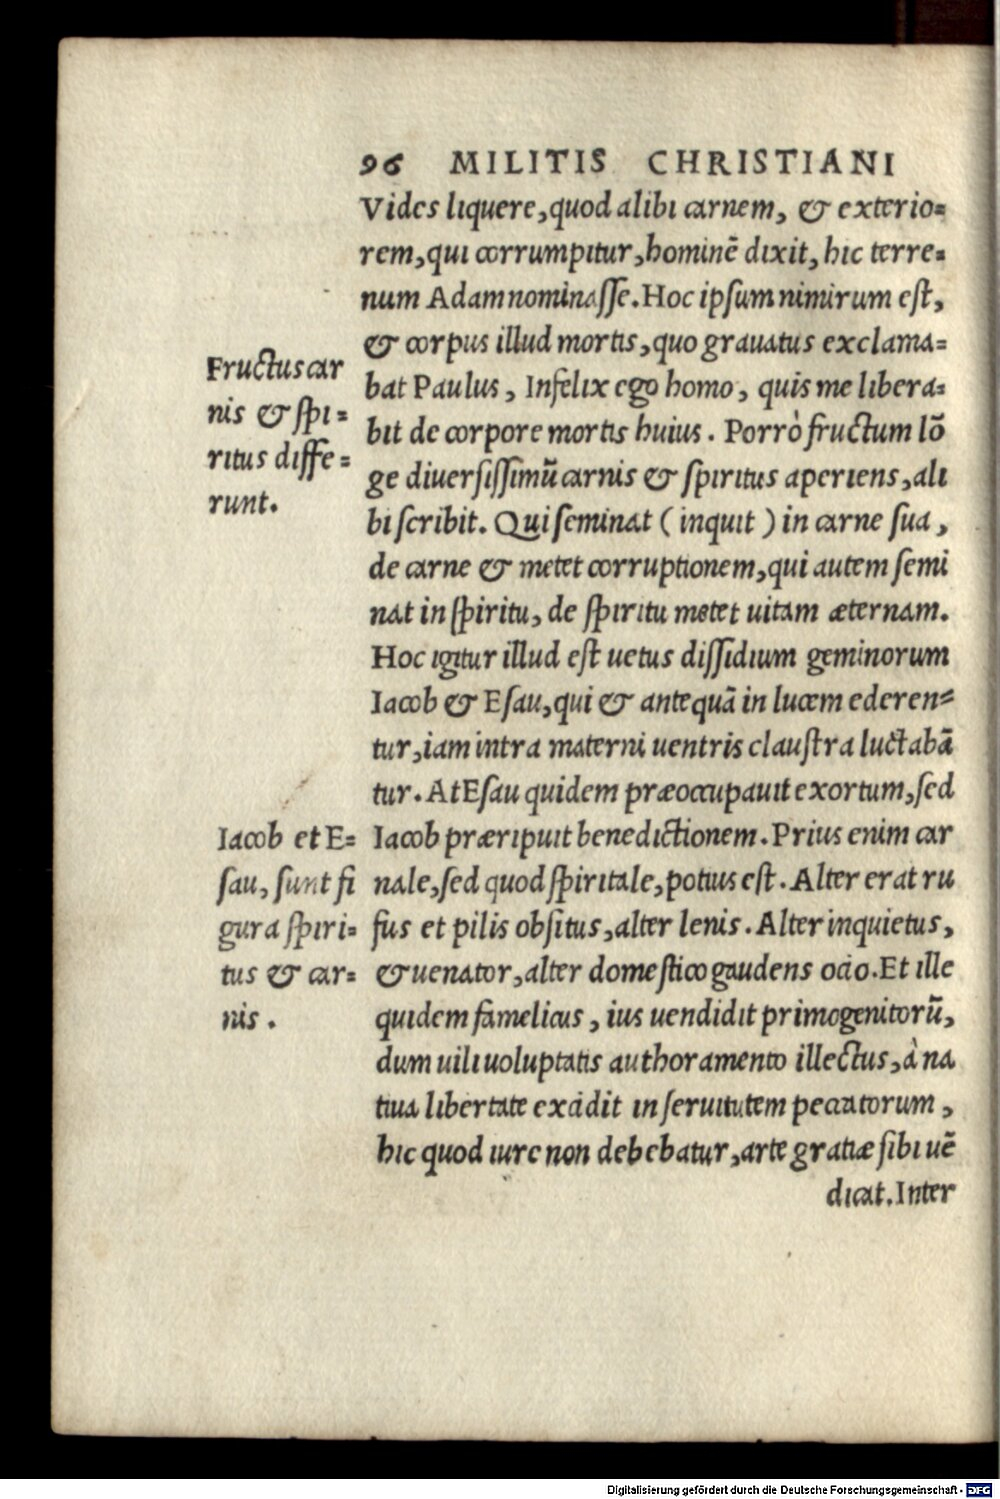 96 MILITIS CHRISTIANI
Vides liquere, quod alibi carnem, & exterio=
rem, qui corrumpitur, hominẽ dixit, hic terre=
num Adam nominasse. Hoc ipsum nimirum est,
& corpus illud mortis, quo grauatus exclama=
bat Paulus, Infelix ego homo, quis me libera=
bit de corpore mortis huius. Porrò fructum lõ
ge diuersissimũ carnis & spiritus aperiens, ali
bi scribit. Qui seminat (inquit) in carne sua,
de carne & metet corruptionem, qui autem semi
nat in spiritu, de spiritu metet uitam æternam.
Hoc igitur illud est uetus dissidium geminorum
Iacob & Esau, qui & antequã in lucem ederen=
tur, iam intra materni uentris claustra luctabã
tur. At Esau quidem præoccupauit exortum, sed
Iacob præripuit benedictionem. Prius enim car
nale, sed quod spiritale, potius est. Alter erat ru
fus et pilis obsitus, alter lenis. Alter inquietus,
& uenator, alter domestico gaudens ocio. Et ille
quidem famelicus, ius uendidit primogenitorũ,
dum uili uoluptatis authoramento illectus, à na
tiua libertate excidit in seruitutem peccatorum,
hic quod iure non debebatur, arte gratiæ sibi uẽ
dicat. Inter
Fructus car
nis & spi=
ritus diffe=
runt.
Iacob et E=
sau, sunt fi
gura spiri=
tus & car=
nis.
Digitalisierung gefördert durch die Deutsche Forschungsgemeinschaft - DFG